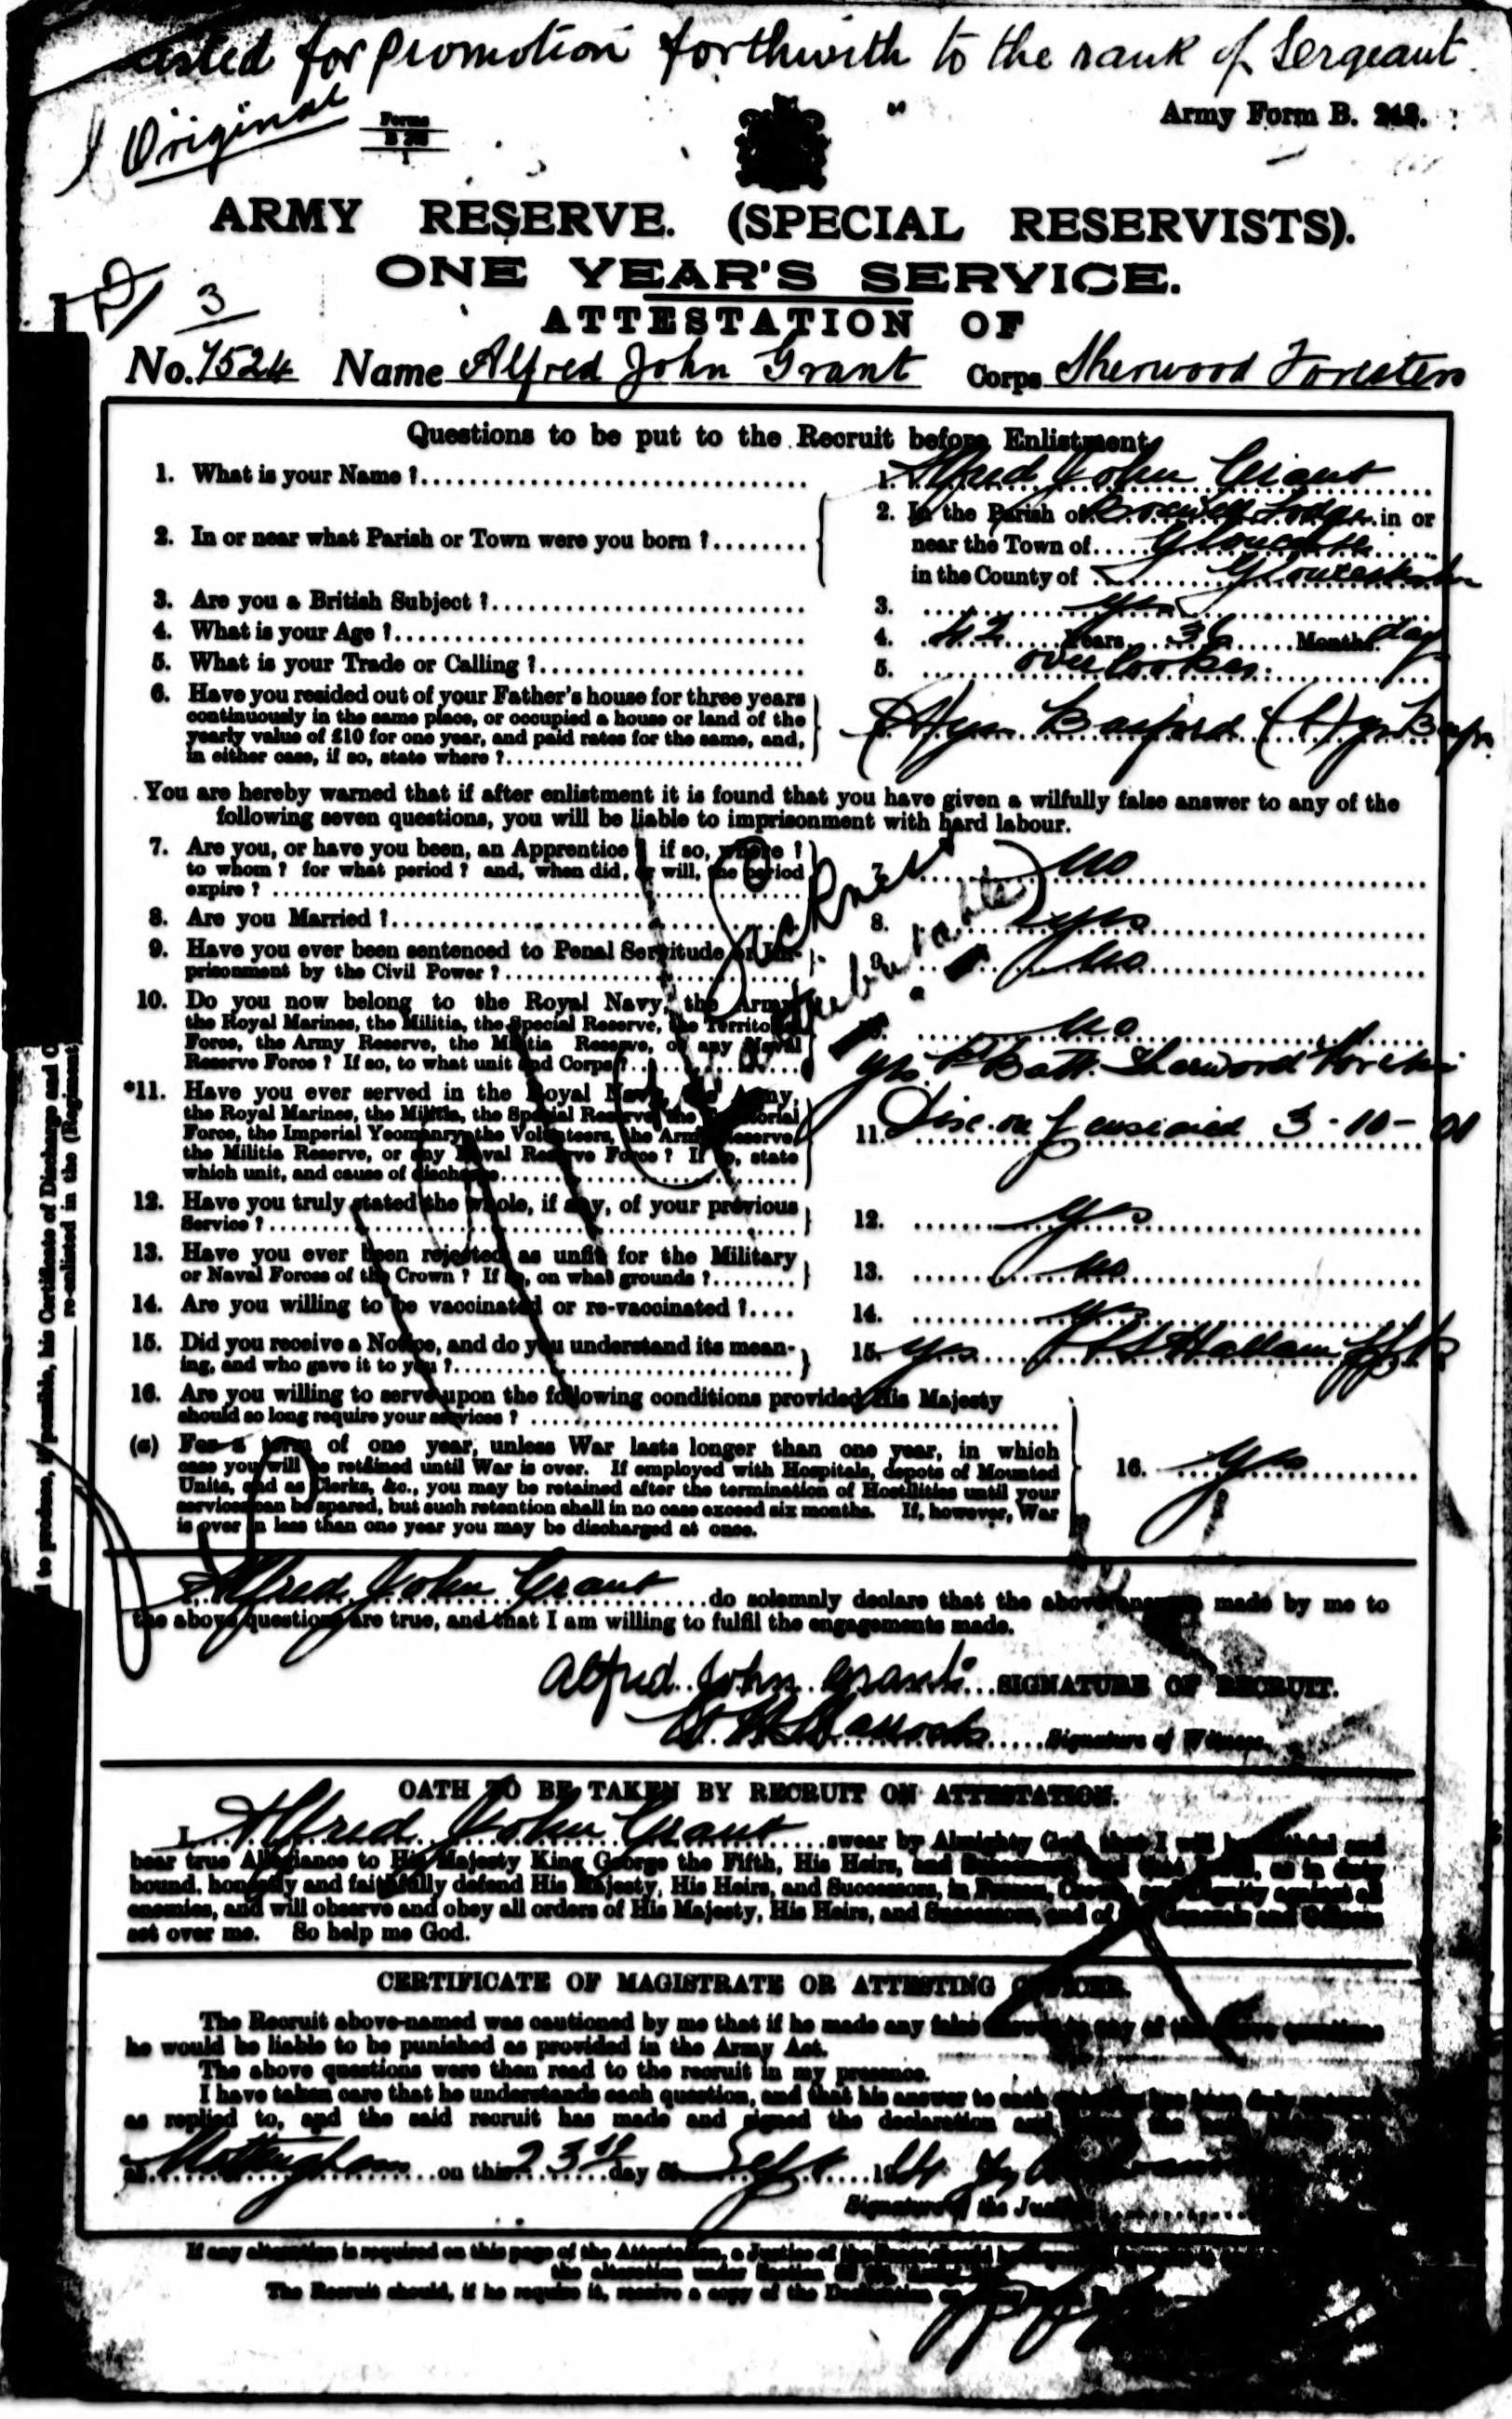 for promotion forthwith to the rank of Sergeant
Original
Forms
Army Form B.
ARMY RESERVE. (SPECIAL RESERVISTS).
ONE YEAR'S SERVICE.
3
ATTESTATION OF
No. 7524 Name Alfred John Grant Corps Sherwood Foresters
Questions to be put to the Recruit before Enlistment
1. What is your Name ? 1. Alfred John Grant
2. In or near what Parish or Town were you born ? 2. In the Parish of Lodge in or
near the Town of Gloucester
in the County of Gloucestershire
3. Are you a British Subject ? 3. Yes
4. What is your Age ? 4. 42 Years 36 Months days
5. What is your Trade or Calling ? 5. overlooker
6. Have you resided out of your Father's house for three years
continuously in the same place, or occupied a house or land of the
yearly value of £10 for one year, and paid rates for the same, and,
in either case, if so, state where ? Basford
You are hereby warned that if after enlistment it is found that you have given a wilfully false answer to any of the
following seven questions, you will be liable to imprisonment with hard labour.
7. Are you, or have you been, an Apprentice ? if so, where ?
to whom ? for what period ? and, when did, or will, the period
expire ? 7. No
8. Are you Married ? 8. yes
9. Have you ever been sentenced to Penal Servitude or Im-
prisonment by the Civil Power ? 9. No
10. Do you now belong to the Royal Navy, the Army,
the Royal Marines, the Militia, the Special Reserve, the Territorial
Force, the Army Reserve, the Militia Reserve, or any Naval
Reserve Force ? If so, to what unit and Corps ? No
*11. Have you ever served in the Royal Navy, the Army,
the Royal Marines, the Militia, the Special Reserve, the Territorial
Force, the Imperial Yeomanry, the Volunteers, the Army Reserve,
the Militia Reserve, or any Naval Reserve Force ? If so, state
which unit, and cause of discharge
yes Batt. Sherwood
11. 3-10-
12. Have you truly stated the whole, if any, of your previous
Service ? 12. yes
13. Have you ever been rejected as unfit for the Military
or Naval Forces of the Crown ? If so, on what grounds ? 13. No
14. Are you willing to be vaccinated or re-vaccinated ? 14. yes
15. Did you receive a Notice, and do you understand its mean-
ing, and who gave it to you ? 15. yes Hallam
16. Are you willing to serve upon the following conditions provided His Majesty
should so long require your services ?
(a) For a term of one year, unless War lasts longer than one year, in which
case you will be retained until War is over. If employed with Hospitals, depots of Mounted
Units, and as Clerks, &c., you may be retained after the termination of Hostilities until your
services can be spared, but such retention shall in no case exceed six months. If, however, War
is over in less than one year you may be discharged at once.
16. yes
Alfred John Grant do solemnly declare that the above made by me to
the above questions are true, and that I am willing to fulfil the engagements made.
Alfred John Grant SIGNATURE OF RECRUIT.
Signature of Witness
OATH TO BE TAKEN BY RECRUIT ON ATTESTATION.
I Alfred John Grant swear by Almighty God, that I will be faithful and
bear true Allegiance to His Majesty King George the Fifth, His Heirs, and Successors, as in duty
bound, honestly and faithfully defend His Majesty, His Heirs, and Successors, in Person, Crown, and Dignity against all
enemies, and will observe and obey all orders of His Majesty, His Heirs, and Successors, and of the Generals and Officers
set over me. So help me God.
CERTIFICATE OF MAGISTRATE OR ATTESTING OFFICER.
The Recruit above-named was cautioned by me that if he made any false answer to any of the above questions
he would be liable to be punished as provided in the Army Act.
The above questions were then read to the recruit in my presence.
I have taken care that he understands each question, and that his answer to each
as replied to, and the said recruit has made and signed the declaration and
at Nottingham on this 23rd day of Sept 1914
Signature of the Justice
If any alteration is required on this page of the Attestation, a Justice of
the alteration under Section
The Recruit should, if he require it, receive a copy of the Declaration on
his Certificate of Discharge and
re-enlisted in the (Regiment)